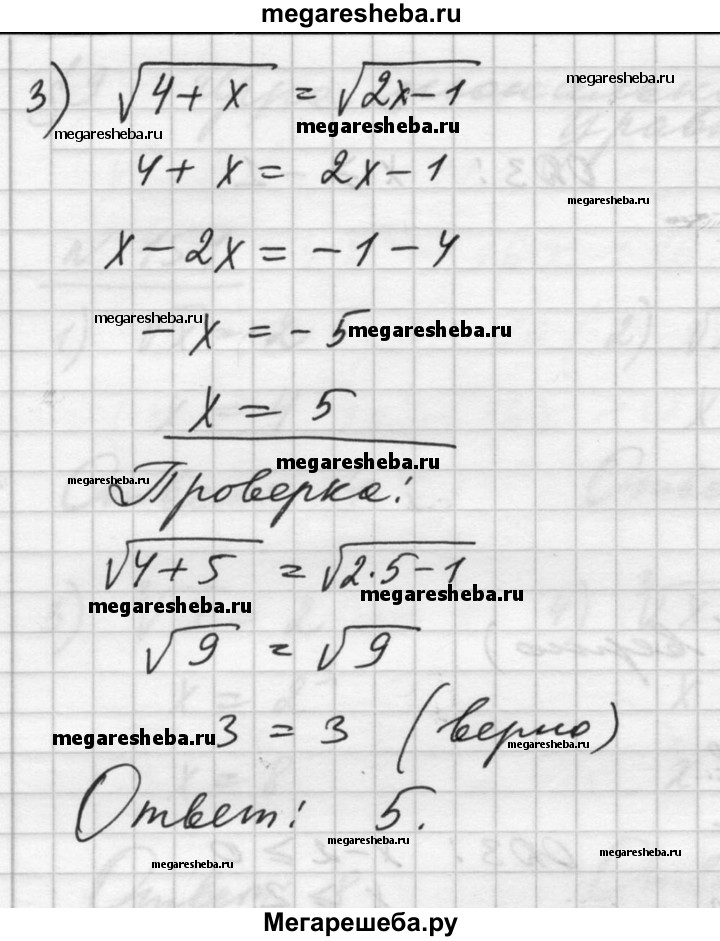 megaresheba.ru
3) √(4 + x) = √(2x - 1)
megaresheba.ru
megaresheba.ru
megaresheba.ru
4 + x = 2x - 1
megaresheba.ru
x - 2x = - 1 - 4
megaresheba.ru
- x = - 5
megaresheba.ru
x = 5
megaresheba.ru
megaresheba.ru
Проверка:
√(4 + 5) = √(2·5 - 1)
megaresheba.ru
megaresheba.ru
√9 = √9
megaresheba.ru
3 = 3 (верно)
megaresheba.ru
Ответ: 5.
megaresheba.ru
megaresheba.ru
megaresheba.ru
Мегарешеба.ру